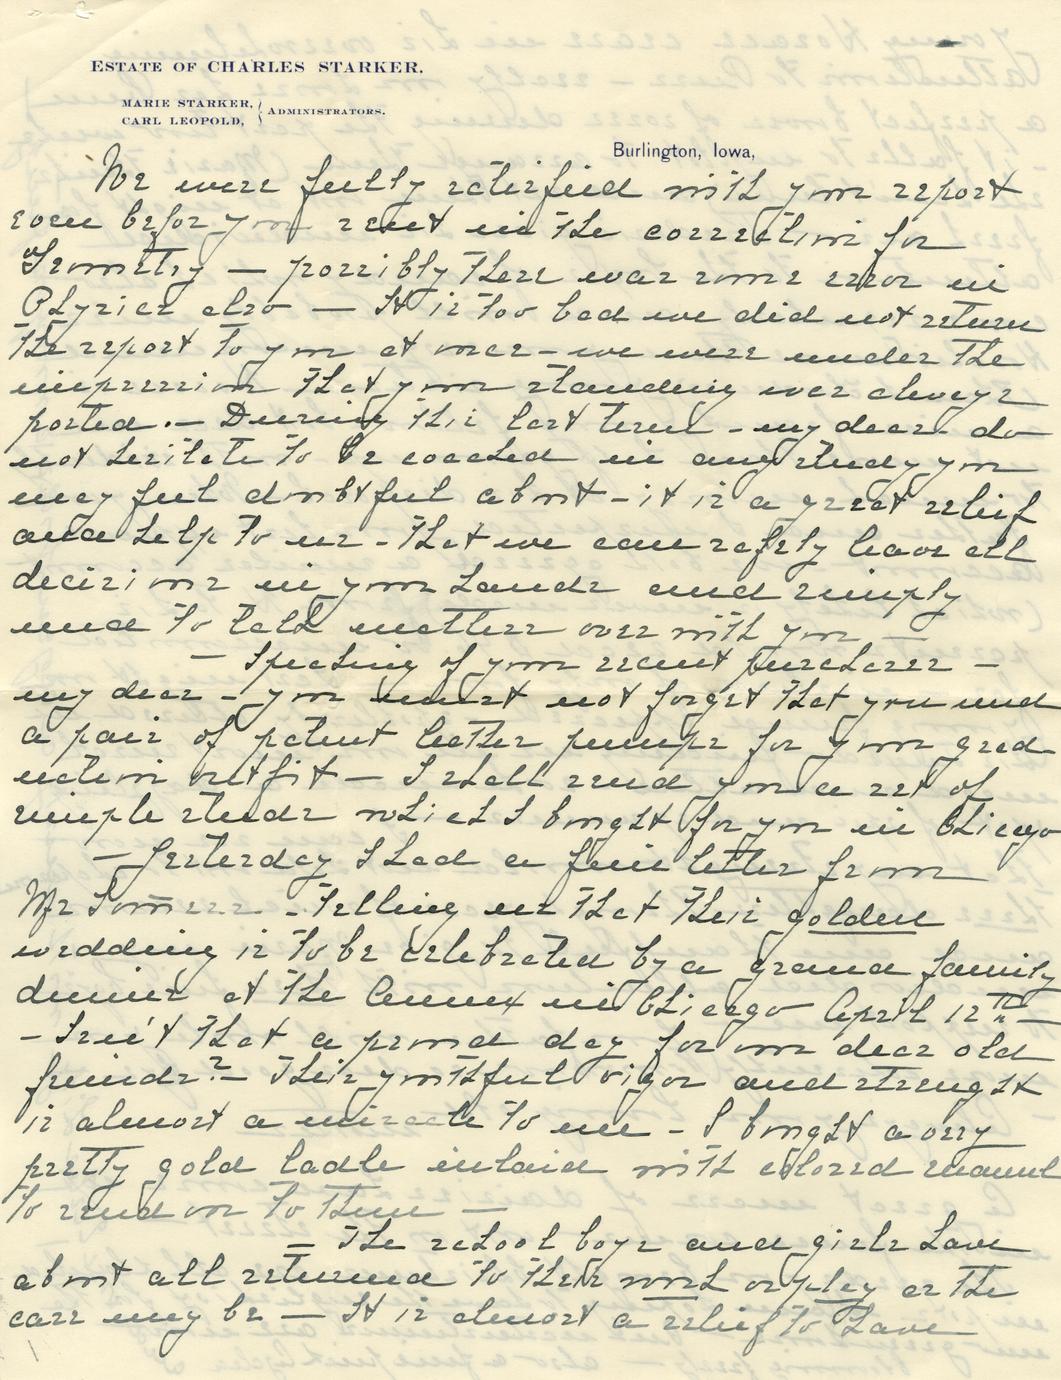 ESTATE OF CHARLES STARKER.
MARIE STARKER,
CARL LEOPOLD, ADMINISTRATORS.
Burlington, Iowa,
We were fully satisfied with your report
even before you sent in the correction for
Geometry — possibly there was some error in
Physics also — It is too bad we did not return
the report to you at once - we were under the
impression that your standing was always
posted. — During this last term - my dear - do
not hesitate to be coached in any study you
may feel doubtful about - it is a great relief
and help to us - that we can safely leave all
decisions in your hands and simply
need to talk matters over with you —
— Speaking of your recent purchases -
my dear - you must not forget that you need
a pair of patent leather pumps for your grad
uation outfit — I shall send you a set of
simple studs which I bought for you in Chicago
— Yesterday I had a fine letter from
Mr - Telling us that their golden
wedding is to be celebrated by a grand family
dinner at the Annex in Chicago April 12th —
- Isn't that a proud day for our dear old
friends? - Their youthful vigor and strenght
is almost a miracle to me - I bought a very
pretty gold ladle inlaid with colored enamel
to send on to them —
= The school boys and girls have
about all returned to their work or play as the
case may be — It is almost a relief to have